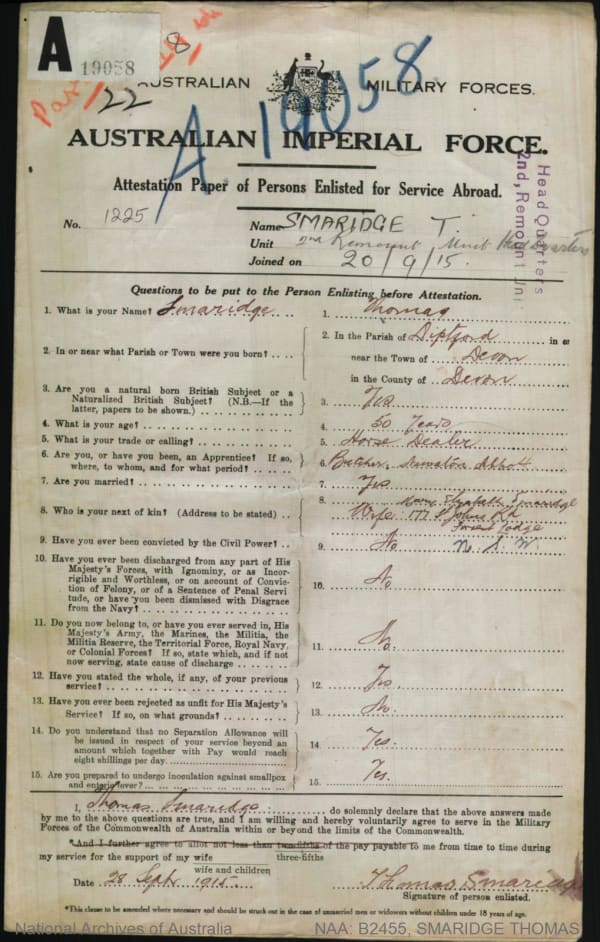 A
19058
8
Par
22
A. 19058.
AUSTRALIAN MILITARY FORCES.
AUSTRALIAN IMPERIAL FORCE.
Attestation Paper of Persons Enlisted for Service Abroad.
Head Quarters
2nd, Remount Uni
No. 1225
Name SMARIDGE T.
Unit 2nd Remount Unit Head Quarters
Joined on 20/9/15.
Questions to be put to the Person Enlisting before Attestation.
1. What is your Name? Smaridge 1. Thomas
2. In or near what Parish or Town were you born? .... 2. In the Parish of Diptford in or
near the Town of Devon
in the County of Devon
3. Are you a natural born British Subject or a
Naturalized British Subject? (N.B.—If the
latter, papers to be shown.) 3. Yes
4. What is your age? 4. 50 Years
5. What is your trade or calling? 5. Horse Dealer
6. Are you, or have you been, an Apprentice? If so,
where, to whom, and for what period? 6. Butcher. Abbott
7. Are you married? 7. Yes
8. Who is your next of kin? (Address to be stated) .. 8. Mary Elizabeth Smaridge
Wife. 177 St Johns Rd
Forest Lodge
N.S.W.
9. Have you ever been convicted by the Civil Power? .. 9. No
10. Have you ever been discharged from any part of His
Majesty's Forces, with Ignominy, or as Incor-
rigible and Worthless, or on account of Convic-
tion of Felony, or of a Sentence of Penal Servi
tude, or have you been dismissed with Disgrace
from the Navy? 10. No
11. Do you now belong to, or have you ever served in, His
Majesty's Army, the Marines, the Militia, the
Militia Reserve, the Territorial Force, Royal Navy,
or Colonial Forces? If so, state which, and if not
now serving, state cause of discharge 11. No.
12. Have you stated the whole, if any, of your previous
service? 12. Yes.
13. Have you ever been rejected as unfit for His Majesty's
Service? If so, on what grounds? 13. No.
14. Do you understand that no Separation Allowance will
be issued in respect of your service beyond an
amount which together with Pay would reach
eight shillings per day. 14 Yes.
15. Are you prepared to undergo inoculation against smallpox
and enteric fever? 15. Yes.
I, Thomas Smaridge do solemnly declare that the above answers made
by me to the above questions are true, and I am willing and hereby voluntarily agree to serve in the Military
Forces of the Commonwealth of Australia within or beyond the limits of the Commonwealth.
*And I further agree to allot not less than two-fifths of the pay payable to me from time to time during
three-fifths
my service for the support of my wife
wife and children
Date 28 Sept. 1915. Thomas Smaridge
Signature of person enlisted.
*This clause to be amended where necessary and should be struck out in the case of unmarried men or widowers without children under 18 years of age.
National Archives of Australia NAA: B2455, SMARIDGE THOMAS